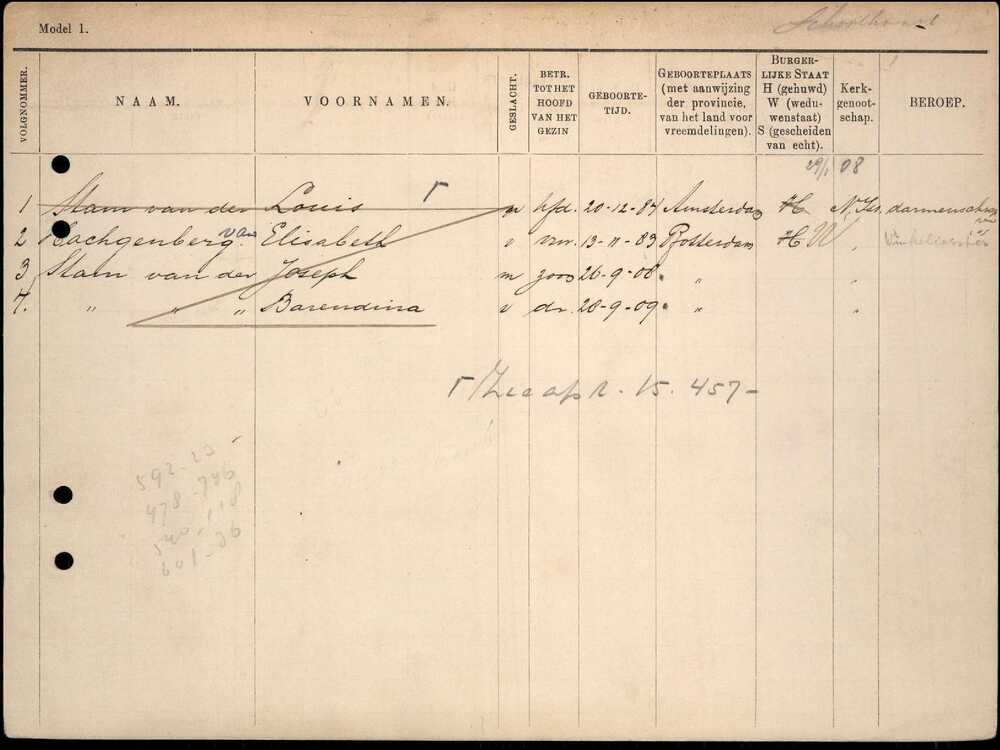 Model 1.
VOLGNOMMER.
NAAM.
VOORNAMEN.
GESLACHT.
BETR. TOT HET HOOFD VAN HET GEZIN
GEBOORTE-TIJD.
GEBOORTEPLAATS (met aanwijzing der provincie, van het land voor vreemdelingen).
BURGER-LIJKE STAAT H (gehuwd) W (wedu-wenstaat) S (gescheiden van echt).
Kerk-genoot-schap.
BEROEP.
29/1 08
1 Stam van der Louis Γ m hfd. 20-12-84 Amsterdam H N. Isr.
2 Hachgenberg van Elisabeth v vrw. 13-11-83 Rotterdam H W "
3 Stam van der Joseph m zoon 26-9-08. " "
4. " " " Barendina v dr. 28-9-09. " "
Γ 15. 457-
592-20